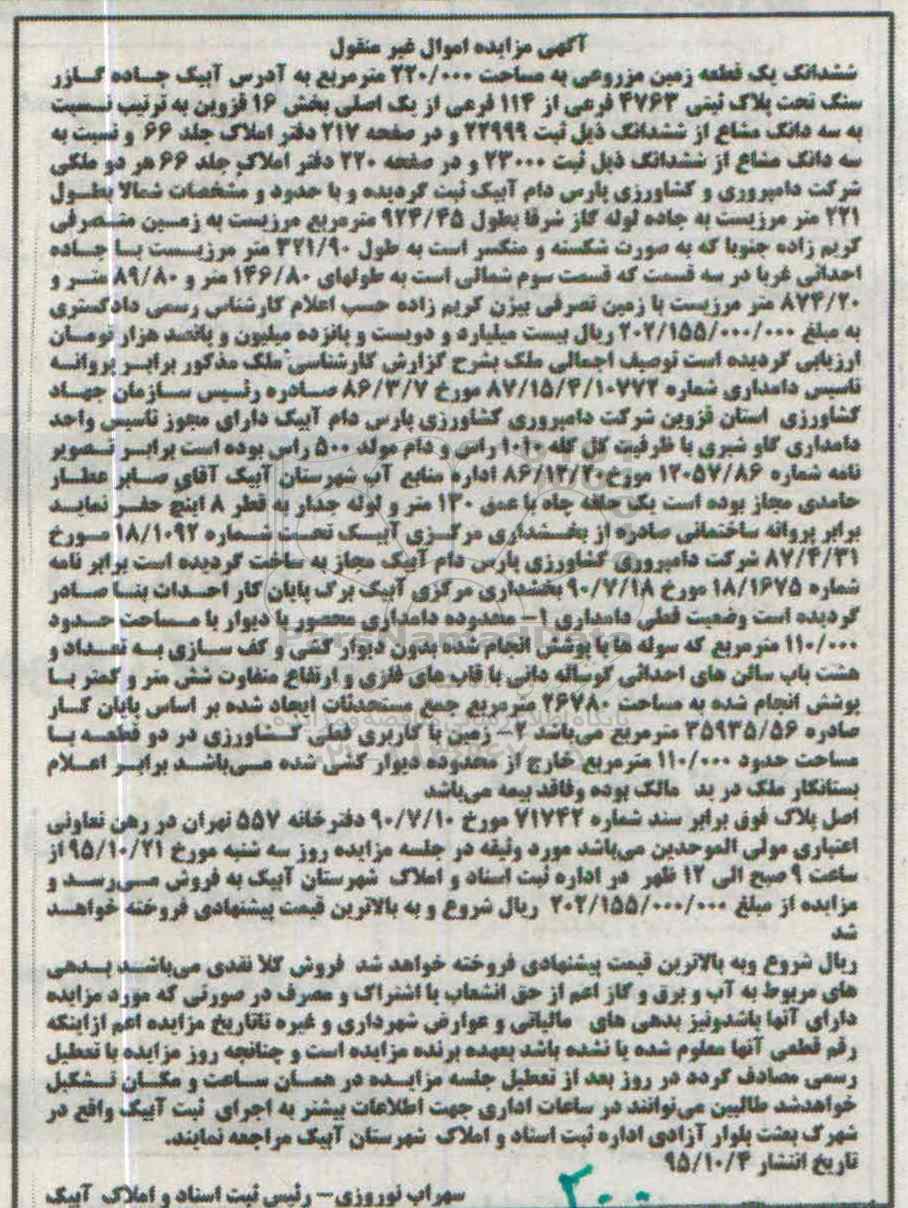 آگهی مزایده اموال غیر منقول
ششدانگ یک قطعه زمین مزروعی به مساحت ۲۲۰/۰۰۰ مترمربع به آدرس آبیک جاده گازر
سنگ تحت پلاک ثبتی ۴۷۶۳ فرعی از ۱۱۴ فرعی از یک اصلی بخش ۱۶ قزوین به ترتیب نسبت
به سه دانگ مشاع از ششدانگ ذیل ثبت ۲۲۹۹۹ و در صفحه ۲۱۷ دفتر املاک جلد ۶۶ و نسبت به
سه دانگ مشاع از ششدانگ ذیل ثبت ۲۳۰۰۰ و در صفحه ۲۲۰ دفتر املاک جلد ۶۶ هر دو ملکی
شرکت دامپروری و کشاورزی پارس دام آبیک ثبت گردیده و با حدود و مشخصات شمالا بطول
۲۲۱ متر مرزیست به جاده لوله گاز شرقا بطول ۹۲۴/۴۵ مترمربع مرزیست به زمین متصرفی
کریم زاده جنوبا که به صورت شکسته و منکسر است به طول ۳۲۱/۹۰ متر مرزیست با جاده
احداثی غربا در سه قسمت که قسمت سوم شمالی است به طولهای ۱۴۶/۸۰ متر و ۸۹/۸۰ متر و
۸۷۴/۲۰ متر مرزیست با زمین تصرفی بیژن کریم زاده حسب اعلام کارشناس رسمی دادگستری
به مبلغ ۲۰۲/۱۵۵/۰۰۰/۰۰۰ ریال بیست میلیارد و دویست و پانزده میلیون و پانصد هزار تومان
ارزیابی گردیده است توصیف اجمالی ملک بشرح گزارش کارشناسی ملک مذکور برابر پروانه
تاسیس دامداری شماره ۸۷/۱۵/۴/۱۰۷۷۲ مورخ ۸۶/۳/۷ صادره رئیس سازمان جهاد
کشاورزی استان قزوین شرکت دامپروری کشاورزی پارس دام آبیک دارای مجوز تاسیس واحد
دامداری گاو شیری با ظرفیت کل گله ۱۰۱۰ راس و دام مولد ۵۰۰ راس بوده است برابر تصویر
نامه شماره ۱۲۰۵۷/۸۶ مورخ ۸۶/۱۲/۲۰ اداره منابع آب شهرستان آبیک آقای صابر عطار
حامدی مجاز بوده است یک حلقه چاه با عمق ۱۳۰ متر و لوله جدار به قطر ۸ اینچ حفر نماید
برابر پروانه ساختمانی صادره از بخشداری مرکزی آبیک تحت شماره ۱۸/۱۰۹۲ مورخ
۸۷/۴/۳۱ شرکت دامپروری کشاورزی پارس دام آبیک مجاز به ساخت گردیده است برابر نامه
شماره ۱۸/۱۶۷۵ مورخ ۹۰/۷/۱۸ بخشداری مرکزی آبیک برگ پایان کار احداث بنا صادر
گردیده است وضعیت فعلی دامداری ۱- محدوده دامداری محصور با دیوار با مساحت حدود
۱۱۰/۰۰۰ مترمربع که سوله ها با پوشش انجام شده بدون دیوار کشی و کف سازی به تعداد و
هشت باب سالن های احداثی گوساله دانی با قاب های فلزی و ارتفاع متفاوت شش متر و کمتر با
پوشش انجام شده به مساحت ۲۶۷۸۰ مترمربع جمع مستحدثات ایجاد شده بر اساس پایان کار
صادره ۳۵۹۳۵/۵۶ مترمربع میباشد ۲- زمین با کاربری فعلی کشاورزی در دو قطعه با
مساحت حدود ۱۱۰/۰۰۰ مترمربع خارج از محدوده دیوار کشی شده میباشد برابر اعلام
بستانکار ملک در ید مالک بوده وفاقد بیمه میباشد
اصل پلاک فوق برابر سند شماره ۷۱۷۴۲ مورخ ۹۰/۷/۱۰ دفترخانه ۵۵۷ تهران در رهن تعاونی
اعتباری مولی الموحدین میباشد مورد وثیقه در جلسه مزایده روز سه شنبه مورخ ۹۵/۱۰/۲۱ از
ساعت ۹ صبح الی ۱۲ ظهر در اداره ثبت اسناد و املاک شهرستان آبیک به فروش میرسد و
مزایده از مبلغ ۲۰۲/۱۵۵/۰۰۰/۰۰۰ ریال شروع و به بالاترین قیمت پیشنهادی فروخته خواهد
شد
ریال شروع وبه بالاترین قیمت پیشنهادی فروخته خواهد شد فروش کلا نقدی میباشد بدهی
های مربوط به آب و برق و گاز اعم از حق انشعاب یا اشتراک و مصرف در صورتی که مورد مزایده
دارای آنها باشدونیز بدهی های مالیاتی و عوارض شهرداری و غیره تاتاریخ مزایده اعم ازاینکه
رقم قطعی آنها معلوم شده یا نشده باشد بعهده برنده مزایده است و چنانچه روز مزایده با تعطیل
رسمی مصادف گردد در روز بعد از تعطیل جلسه مزایده در همان ساعت و مکان تشکیل
خواهدشد طالبین میتوانند در ساعات اداری جهت اطلاعات بیشتر به اجرای ثبت آبیک واقع در
شهرک بعثت بلوار آزادی اداره ثبت اسناد و املاک شهرستان آبیک مراجعه نمایند.
تاریخ انتشار ۹۵/۱۰/۴
سهراب نوروزی- رئیس ثبت اسناد و املاک آبیک
۲۰۰
ParsNamadData